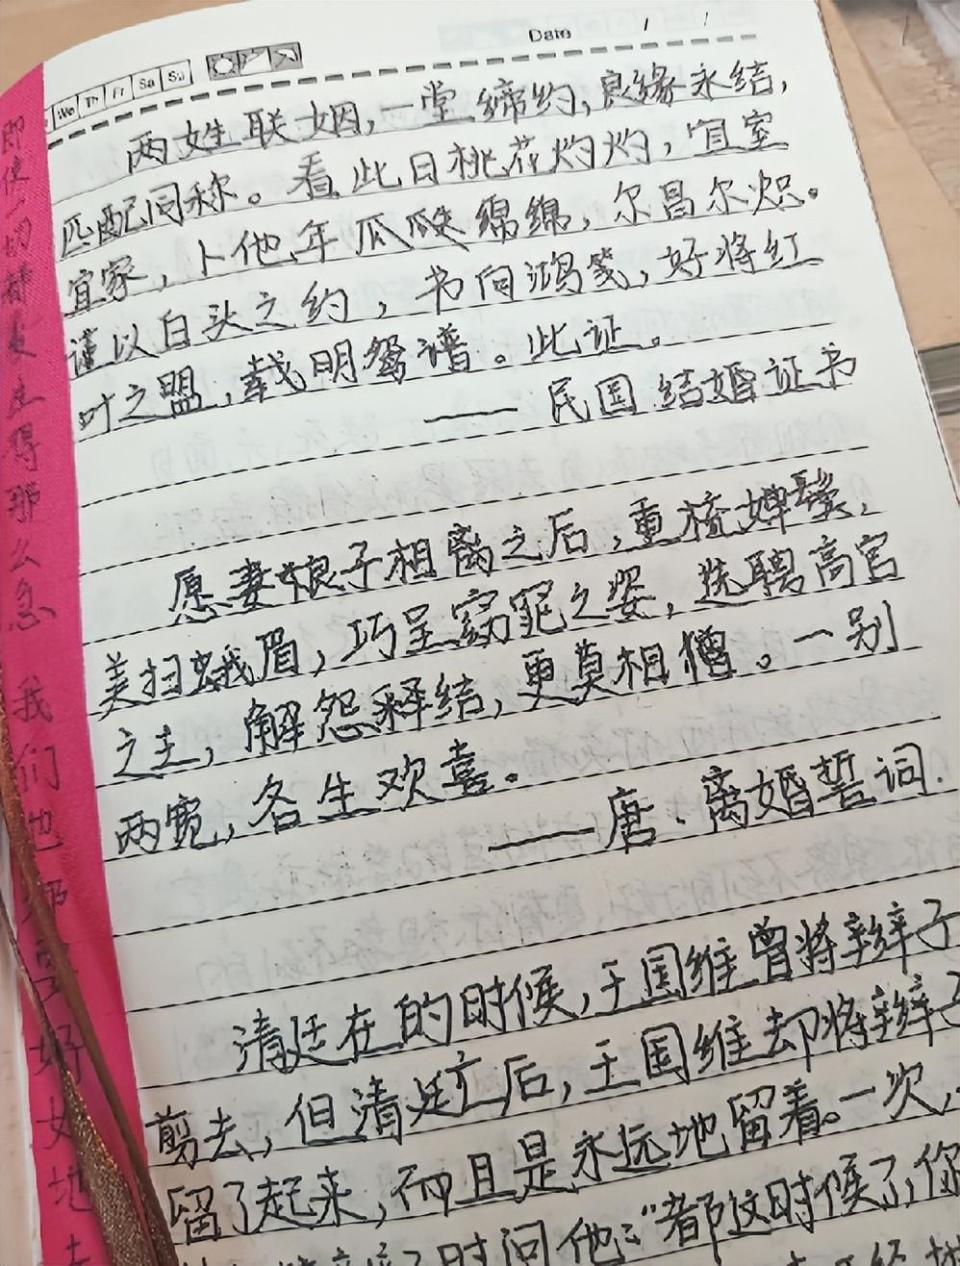 We Th Fr Sa Su
Date / /
两姓联姻，一堂缔约，良缘永结，
匹配同称。看此日桃花灼灼，宜室
宜家，卜他年瓜瓞绵绵，尔昌尔炽。
谨以白头之约，书向鸿笺，好将红
叶之盟，载明鸳谱。此证。
——民国结婚证书
愿妻娘子相离之后，重梳婵鬓，
美扫娥眉，巧呈窈窕之姿，选聘高官
之主，解怨释结，更莫相憎。一别
两宽，各生欢喜。
——唐·离婚誓词.
清廷在的时候，王国维曾将辫子
剪去，但清廷亡后，王国维却将辫子
留了起来，而且是永远地留着。一次，
时问他：“都这时候了，你
即使一切都变
得那么急 我们也
要好